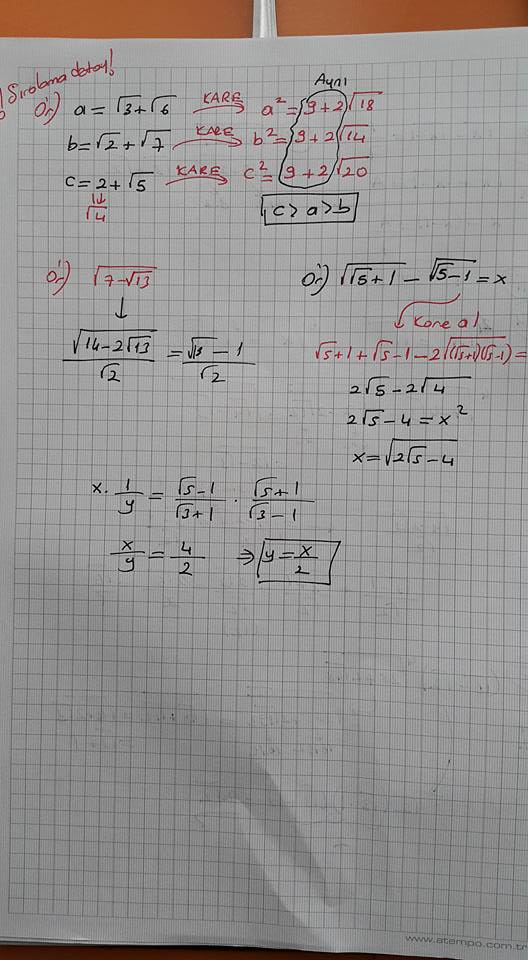 ! Sıralama detay!
Aynı
Ör) a = √3 + √6 KARE a² = 9 + 2√18
b = √2 + √7 KARE b² = 9 + 2√14
c = 2 + √5 KARE c² = 9 + 2√20
√4
c > a > b
Ör) √(7-√13)
√(14-2√13)/√2 = (√13 - 1)/√2
Ör) √(√5+1) - √(√5-1) = x
Kare al
√5+1+√5-1-2√((√5+1)(√5-1)) =
2√5-2√4
2√5-4 = x²
x = √(2√5-4)
x · 1/y = (√5-1)/(√3+1) · (√5+1)/(√3-1)
x/y = 4/2 ⇒ y = x/2
www.atempo.com.tr